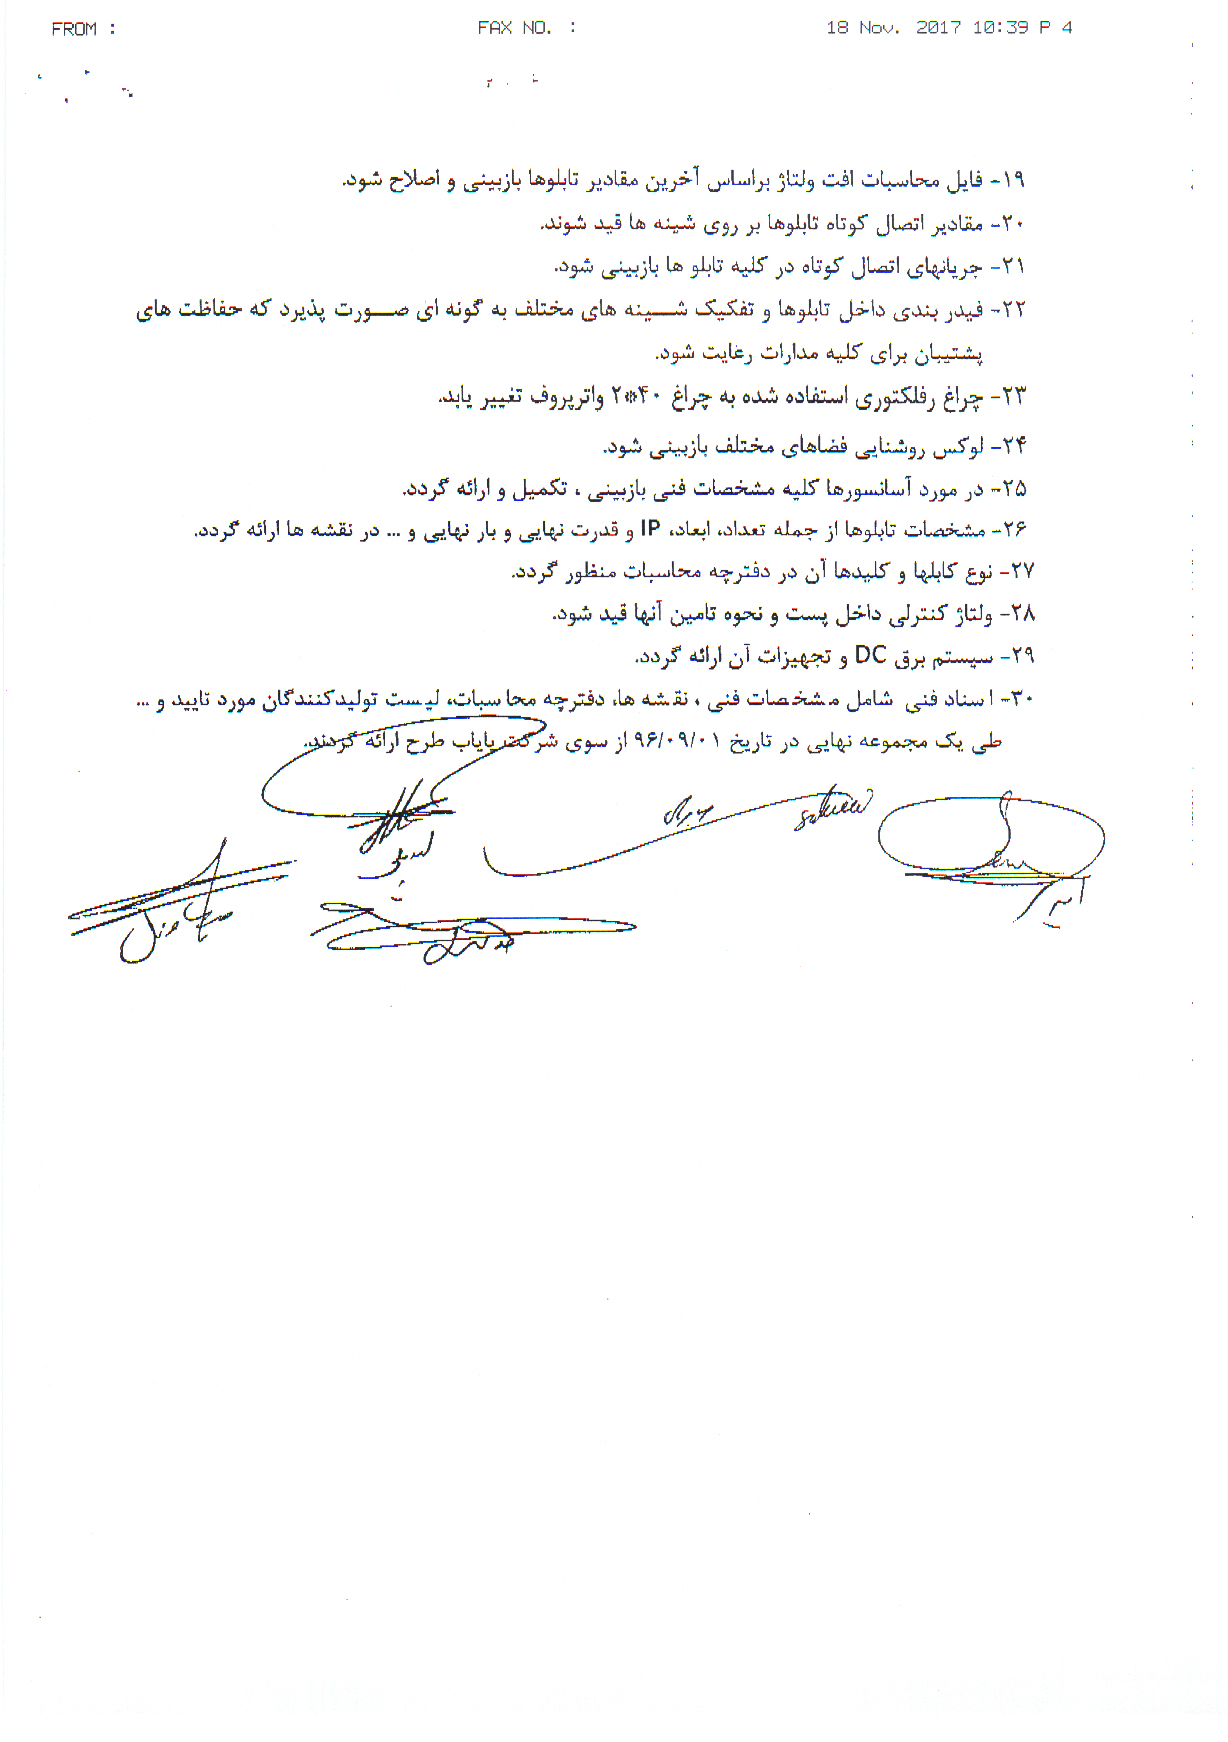 FROM : FAX NO. : 18 Nov. 2017 10:39 P 4
۱۹- فایل محاسبات افت ولتاژ براساس آخرین مقادیر تابلوها بازبینی و اصلاح شود.
۲۰- مقادیر اتصال کوتاه تابلوها بر روی شینه ها قید شوند.
۲۱- جریانهای اتصال کوتاه در کلیه تابلو ها بازبینی شود.
۲۲- فیدر بندی داخل تابلوها و تفکیک شینه های مختلف به گونه ای صورت پذیرد که حفاظت های
پشتیبان برای کلیه مدارات رعایت شود.
۲۳- چراغ رفلکتوری استفاده شده به چراغ ۴۰*۲ واترپروف تغییر یابد.
۲۴- لوکس روشنایی فضاهای مختلف بازبینی شود.
۲۵- در مورد آسانسورها کلیه مشخصات فنی بازبینی ، تکمیل و ارائه گردد.
۲۶- مشخصات تابلوها از جمله تعداد، ابعاد، IP و قدرت نهایی و بار نهایی و ... در نقشه ها ارائه گردد.
۲۷- نوع کابلها و کلیدها آن در دفترچه محاسبات منظور گردد.
۲۸- ولتاژ کنترلی داخل پست و نحوه تامین آنها قید شود.
۲۹- سیستم برق DC و تجهیزات آن ارائه گردد.
۳۰- اسناد فنی شامل مشخصات فنی ، نقشه ها، دفترچه محاسبات، لیست تولیدکنندگان مورد تایید و ...
طی یک مجموعه نهایی در تاریخ ۹۶/۰۹/۰۱ از سوی شرکت پایاب طرح ارائه گردند.